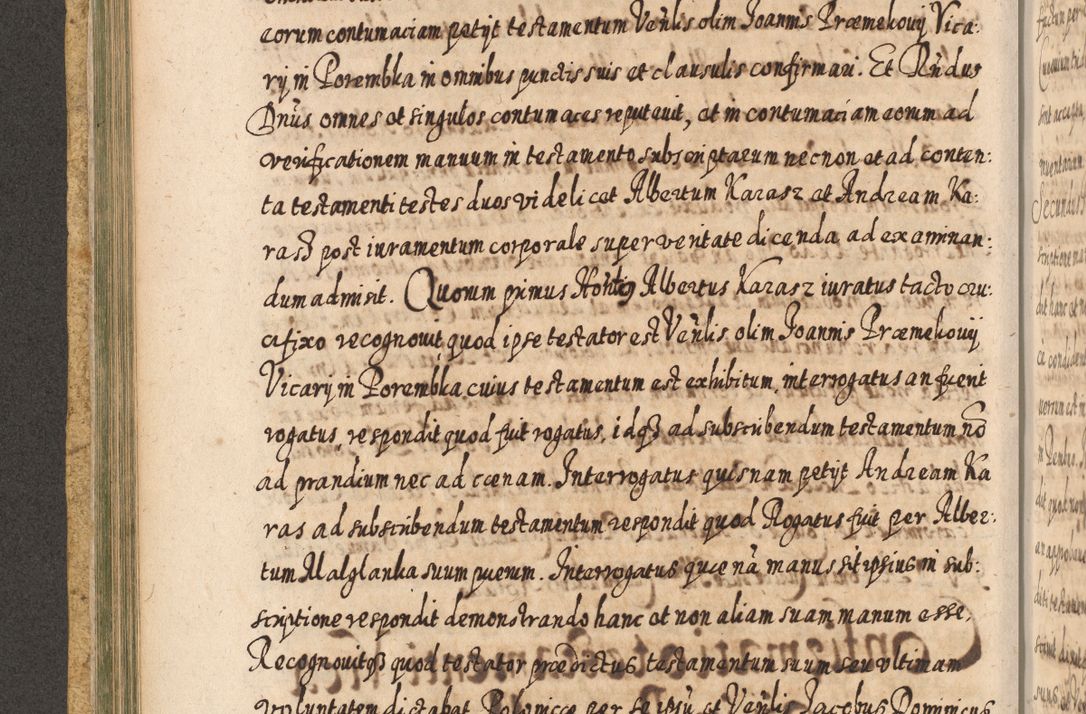 eorum contumaciam petyt testamentum Venlis olim Joannis Præmekovy Vica:
ry in Porembka in omnibus punctis suis et clausulis confirmari. Et Rndus
Dnus omnes et singulos contumaces reputavit, et in contumaciam eorum ad
verificationem manuum in testamento subscriptarum necnon et ad conten:
ta testamenti testes duos videlicet Albertum Karasz et Andream Ka:
rasz post iuramentum corporale super veritate dicenda ad examinan:
dum admisit. Quorum primus Albertus Karasz iuratus tacto cru:
cifixo recognovit quod ipse testator est Venlis olim Joannis Præmekovy
Vicary in Porembka cuius testamentum est exhibitum, interrogatus an fuerit
rogatus, respondit quod fuit rogatus, idq3 ad subscribendum testamentum nō
ad prandium nec ad cœnam. Interrogatus quisnam petyt Andream Ka
ras ad subscribendum testamentum respondit quod Rogatus fuit per Alber:
tum Malglanka suum puerum. Interrogatus quænā manus sit ipsius in sub:
scriptione respondit demonstrando hanc et non aliam suam manum esse.
Recognovitq3 quod testator prædictus testamentum suum seu ultimam
voluntatem dictabat Polonicæ per se ipsū et Venlis Jacobus Dominicus